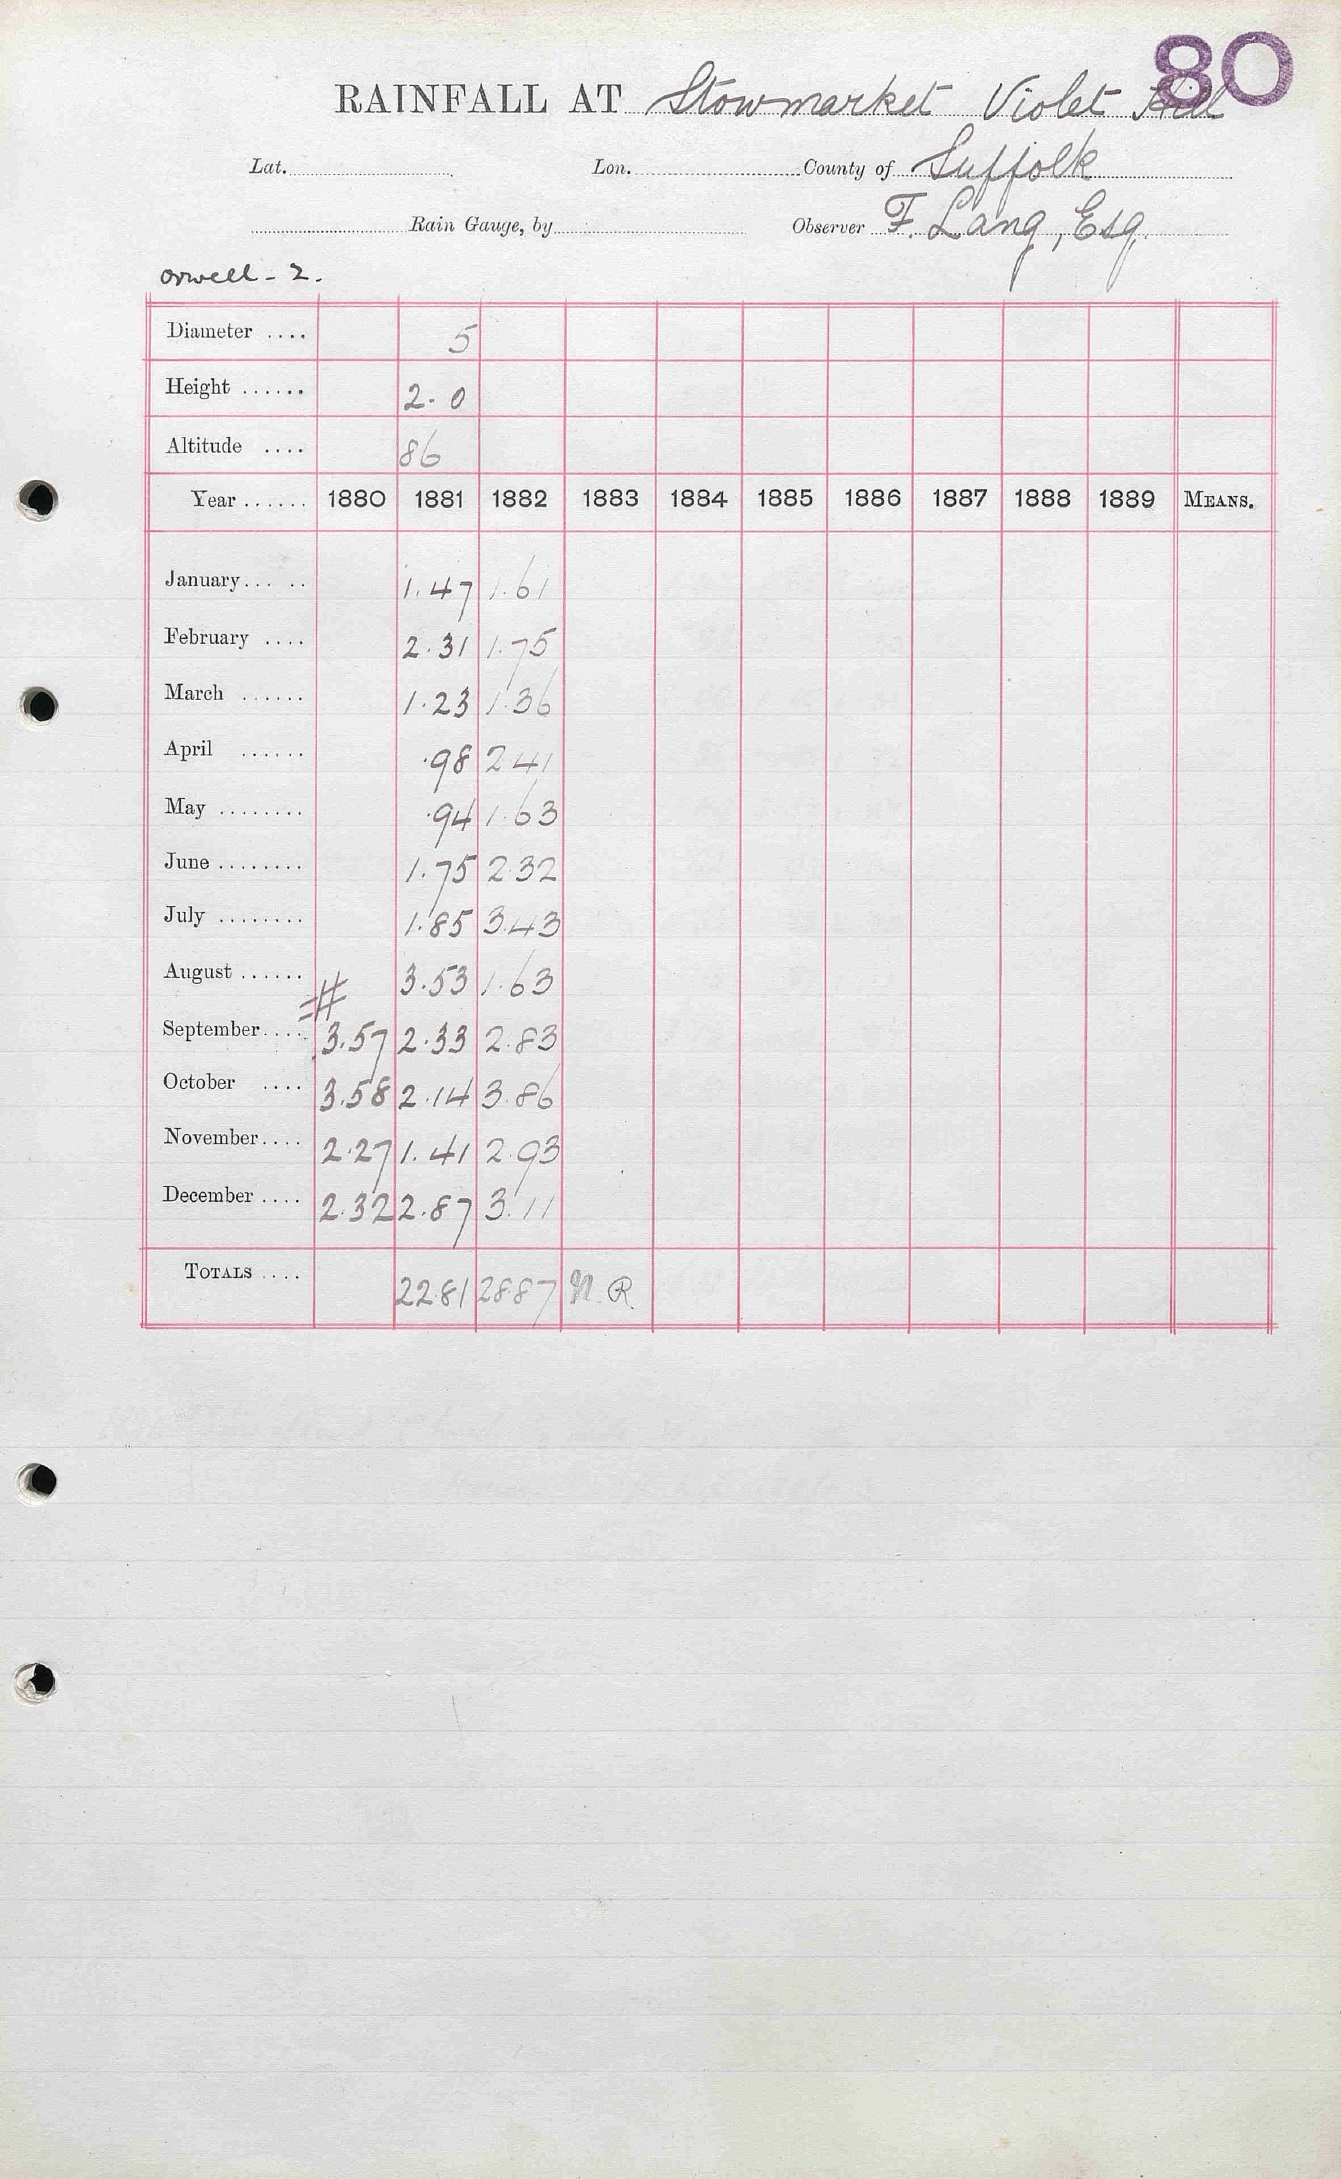 80
RAINFALL AT Stowmarket Violet Hill
Lat. Lon. County of Suffolk
Rain Gauge, by Observer F. Lang, Esq.
Orwell - 2.
Diameter .... 5
Height ...... 2.0
Altitude .... 86
Year ...... 1880 1881 1882 1883 1884 1885 1886 1887 1888 1889 MEANS.
January ... .. 1.47 1.61
February .... 2.31 1.75
March ...... 1.23 1.36
April ...... .98 2.41
May ........ .94 1.63
June ........ 1.75 2.32
July ........ 1.85 3.43
August ...... # 3.53 1.63
September .... 3.57 2.33 2.83
October .... 3.58 2.14 3.86
November .... 2.27 1.41 2.93
December .... 2.32 2.87 3.11
TOTALS .... 22.81 28.87 N.R.